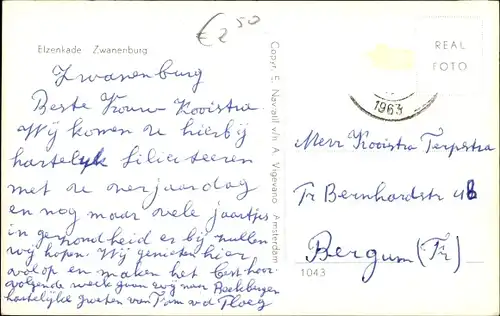 € 2 50
Elzenkade Zwanenburg
Zwanenburg
Beste Vrouw Kooistra
Wij komen U hierbij
hartelijk feliciteeren
met de verjaardag
en nog maar vele jaartjes
in gezondheid er bij zullen
wij hopen. Wij genieten hier
volop en maken het best hoor
volgende week gaan wij naar Beekbergen
hartelijke groeten van Fam v d Ploeg
Copyr. E. Navall v/h A. Vigeveno Amsterdam
REAL
FOTO
1963
Mevr Kooistra Terpstra
Pr Bernhardstr 48
Bergum (Fr)
1043